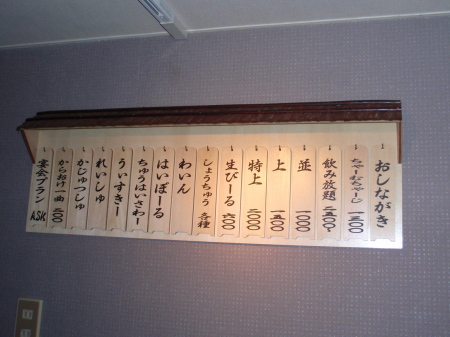 おしながき
ちゃーむちゃーじ 一三〇〇
飲み放題 二五〇〇
並 一〇〇〇
上 一五〇〇
特上 二〇〇〇
生びーる 六〇〇
しょうちゅう 各種
わいん
はいぼーる
ちゅうはいさわー
うぃすきー
れいしゅ
かじゅつしゅ
からおけ一曲 二〇〇
宴会プラン ASK